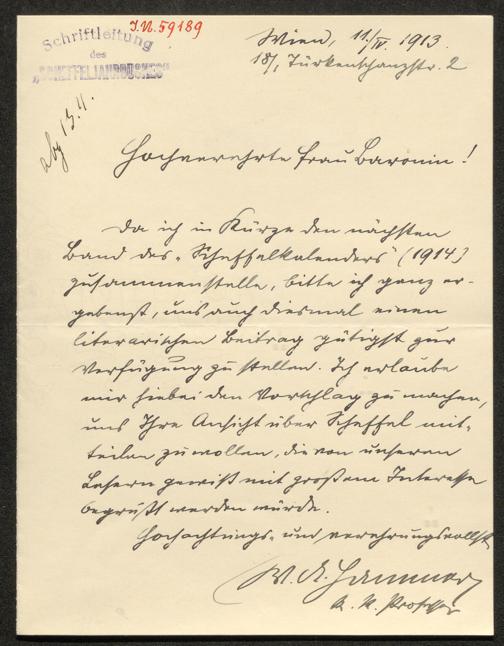 I.N. 59189
Schriftleitung
des
„SCHEFFELJAHRBUCHES“
Wien, 11./IV. 1913.
18/1 Türkenschanzstr. 2
abg 13.4.
Hochverehrte Frau Baronin!
Da ich in Kürze den nächsten
Band des „Scheffelkalenders“ (1914)
zusammenstelle, bitte ich ganz er-
gebenst, uns auch diesmal einen
literarischen Beitrag gütigst zur
Verfügung zu stellen. Ich erlaube
mir hiebei den Vorschlag zu machen,
uns Ihre Ansicht über Scheffel mit-
teilen zu wollen, die von unseren
Lesern gewiß mit großem Interesse
begrüßt werden würde.
Hochachtungs- und verehrungsvollst
W. A. Hammer
K. K. Professor